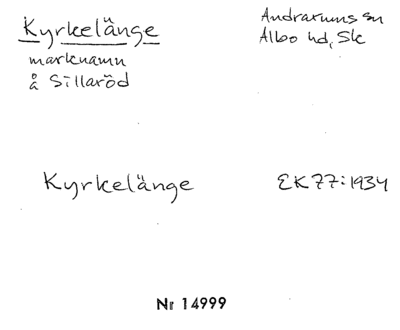 Kyrkelänge
Andrarums sn
Albo hd, Sk
marknamn
å Sillaröd
Kyrkelänge
EK77:1934
Nr 14999